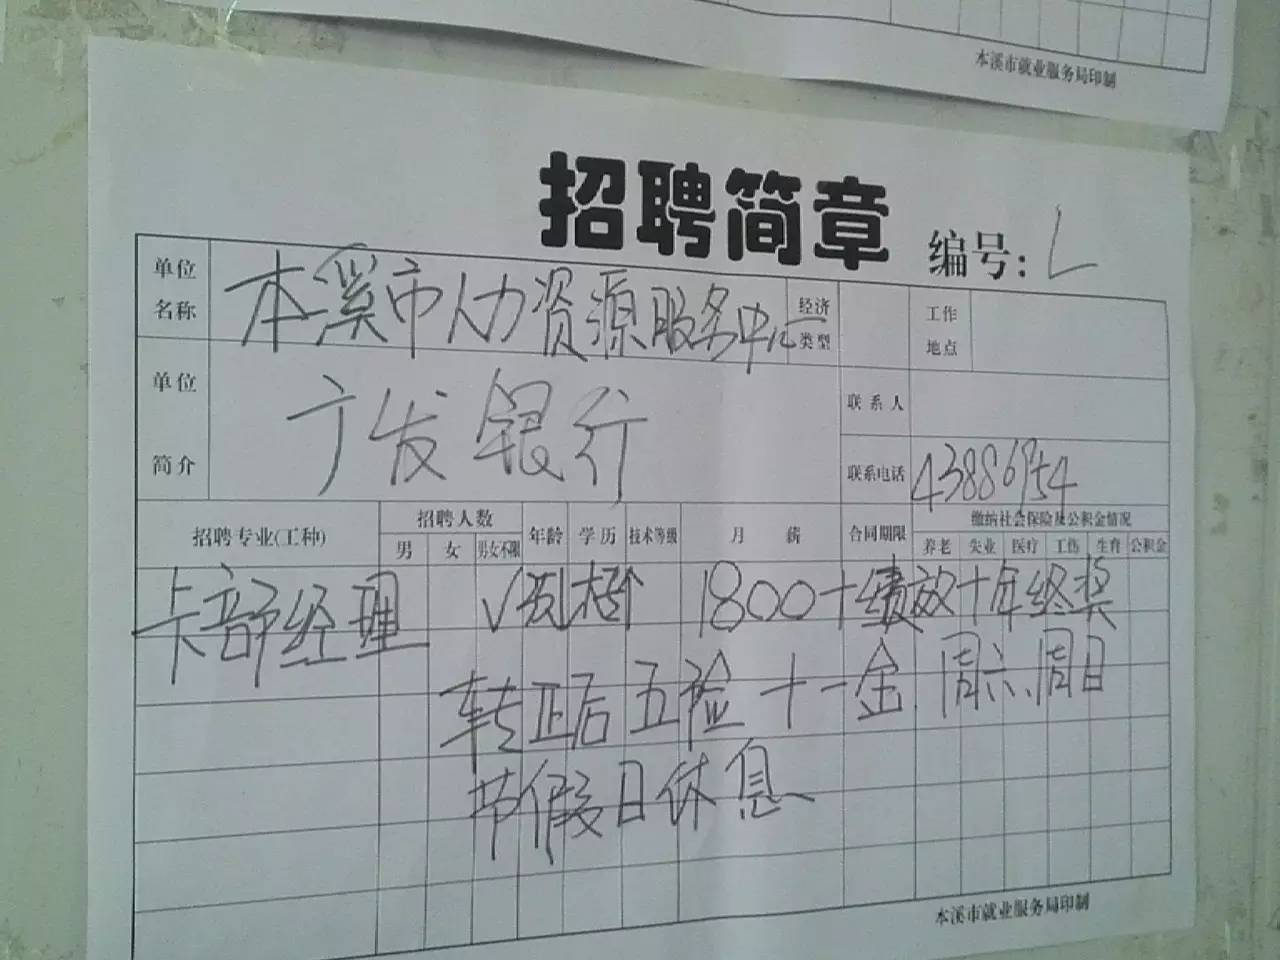 本溪市就业服务局印制
招聘简章 编号:
单位名称 本溪市人力资源服务中心 经济类型 工作地点
单位简介 广发银行 联系人
联系电话 43886954
招聘专业(工种) 招聘人数 年龄 学历 技术等级 月薪 合同期限 缴纳社会保险及公积金情况
男 女 男女不限 养老 失业 医疗 工伤 生育 公积金
卡部经理 √ 1800+绩效+年终奖
转正后五险十一金 周六、周日
节假日休息
本溪市就业服务局印制